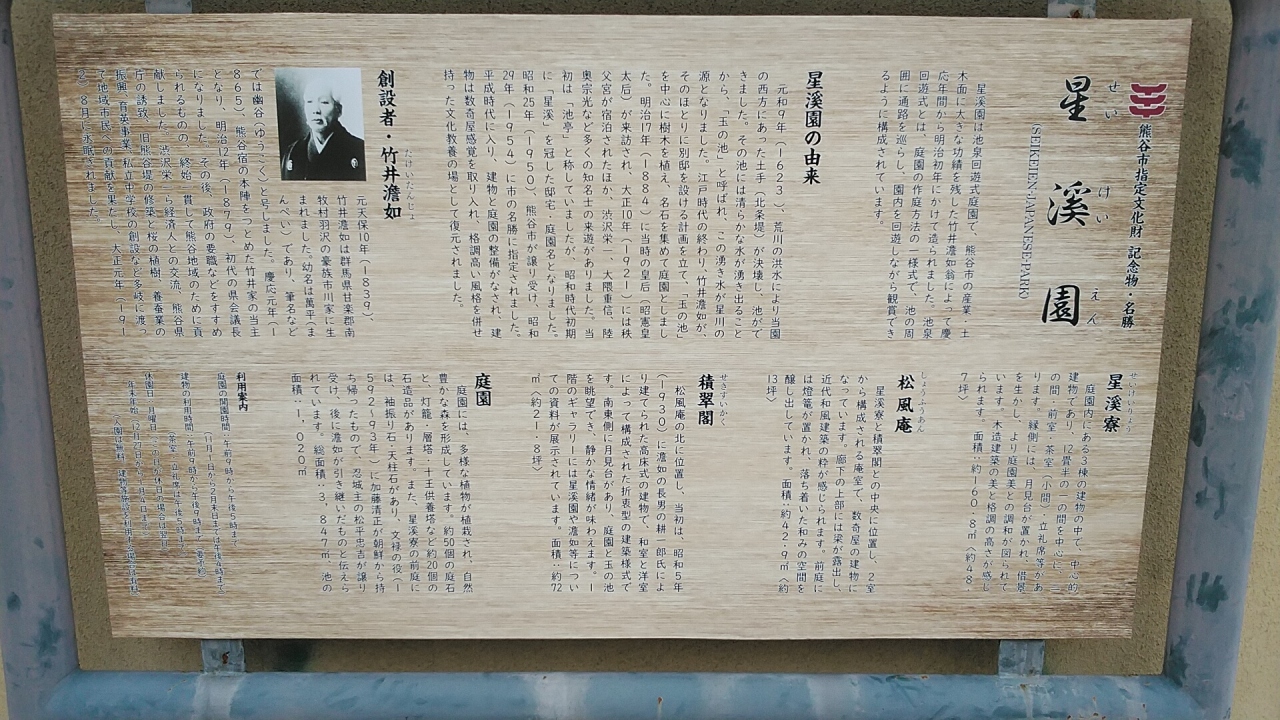 熊谷市指定文化財 記念物・名勝
星溪園
せい けい えん
(SEIKEIEN-JAPANESE-PARK)
星溪園は池泉回遊式庭園で、熊谷市の産業、土
木面に大きな功績を残した竹井澹如翁によって慶
応年間から明治初年にかけて造られました。池泉
回遊式とは、庭園の作庭方法の一様式で、池の周
囲に通路を巡らし、園内を回遊しながら観賞でき
るように構成されています。
星溪園の由来
元和9年(1623)、荒川の洪水により当園
の西方にあった土手(北条堤)が決壊し、池がで
きました。その池には清らかな水が湧き出ること
から、「玉の池」と呼ばれ、この湧き水が星川の
源となりました。江戸時代の終わり、竹井澹如が、
そのほとりに別邸を設ける計画を立て、「玉の池」
を中心に樹木を植え、名石を集めて庭園としまし
た。明治17年(1884)に当時の皇后(昭憲皇
太后)が来訪され、大正10年(1921)には秩
父宮が宿泊されたほか、渋沢栄一、大隈重信、陸
奥宗光など多くの知名士の来遊がありました。当
初は「池亭」と称していましたが、昭和時代初期
に「星溪」を冠した邸宅・庭園名となりました。
昭和25年(1950)、熊谷市が譲り受け、昭和
29年(1954)に市の名勝に指定されました。
平成時代に入り、建物と庭園の整備がなされ、建
物は数寄屋感覚を取り入れ、格調高い風格を併せ
持った文化教養の場として復元されました。
創設者・竹井澹如
たけいたんじょ
元天保10年(1839)、
竹井澹如は群馬県甘楽郡南
牧村羽沢の豪族市川家に生
まれました。幼名は萬平(ま
んぺい)であり、筆名など
では幽谷(ゆうこく)と号しました。慶応元年(1
865)、熊谷宿の本陣をつとめた竹井家の当主
となり、明治12年(1879)、初代の県会議長
になりました。その後、政府の要職などをすすめ
られるものの、終始一貫して熊谷地域のために貢
献しました。渋沢栄一ら経済人との交流、熊谷県
庁の誘致、旧熊谷堤の修築と桜の植樹、養蚕業の
振興、育英事業、私立中学校の創設など多岐に渡
って地域市民への貢献を果たし、大正元年(191
2)8月に永眠されました。
星溪寮
せいけいりょう
庭園内にある3棟の建物の中で、中心的
建物であり、12畳半の一の間を中心に、二
の間・前室・茶室(小間)、立礼席等があ
ります。縁側には、月見台が置かれ、借景
を生かし、より庭園美との調和が図られて
います。木造建築の美と格調の高さが感じ
られます。面積:約160・8㎡(約48・
7坪)
松風庵
しょうふうあん
星溪寮と積翠閣との中央に位置し、2室
から構成される庵室で、数奇屋の建物に
なっています。廊下の上部には梁が露出し、
近代和風建築の粋が感じられます。前庭に
は燈篭が置かれ、落ち着いた和みの空間を
醸し出しています。面積:約42・9㎡(約
13坪)
積翠閣
せきすいかく
松風庵の北に位置し、当初は、昭和5年
(1930)に澹如の長男の耕一郎氏によ
り建てられた高床式の建物で、和室と洋室
によって構成された折衷型の建築様式で
す。南東側に月見台があり、庭園と玉の池
を眺望でき、静かな情緒が味わえます。1
階のギャラリーには星溪園や澹如等につい
ての資料が展示されています。面積:約72
㎡(約21・8坪)
庭園
庭園には、多様な植物が植栽され、自然
豊かな森を形成しています。約50個の庭石
と、灯籠・層塔・十王供養塔など約20個の
石造品があります。また、星溪寮の前庭に
は、袖振り石・天柱石があり、文禄の役(1
592~93年)に加藤清正が朝鮮から持
ち帰ったもので、忍城主の松平忠吉が譲り
受け、後に澹如が引き継いだものと伝えら
れています。総面積:3,847㎡、池の
面積:1,020㎡
利用案内
庭園の開園時間:午前9時から午後5時まで
(11月1日から2月末日までは午後4時まで)
建物の利用時間:午前9時から午後9時まで(要予約)
(茶室・立礼席は午後5時まで)
休園日:月曜日
年末年始(12月29日から1月3日まで)